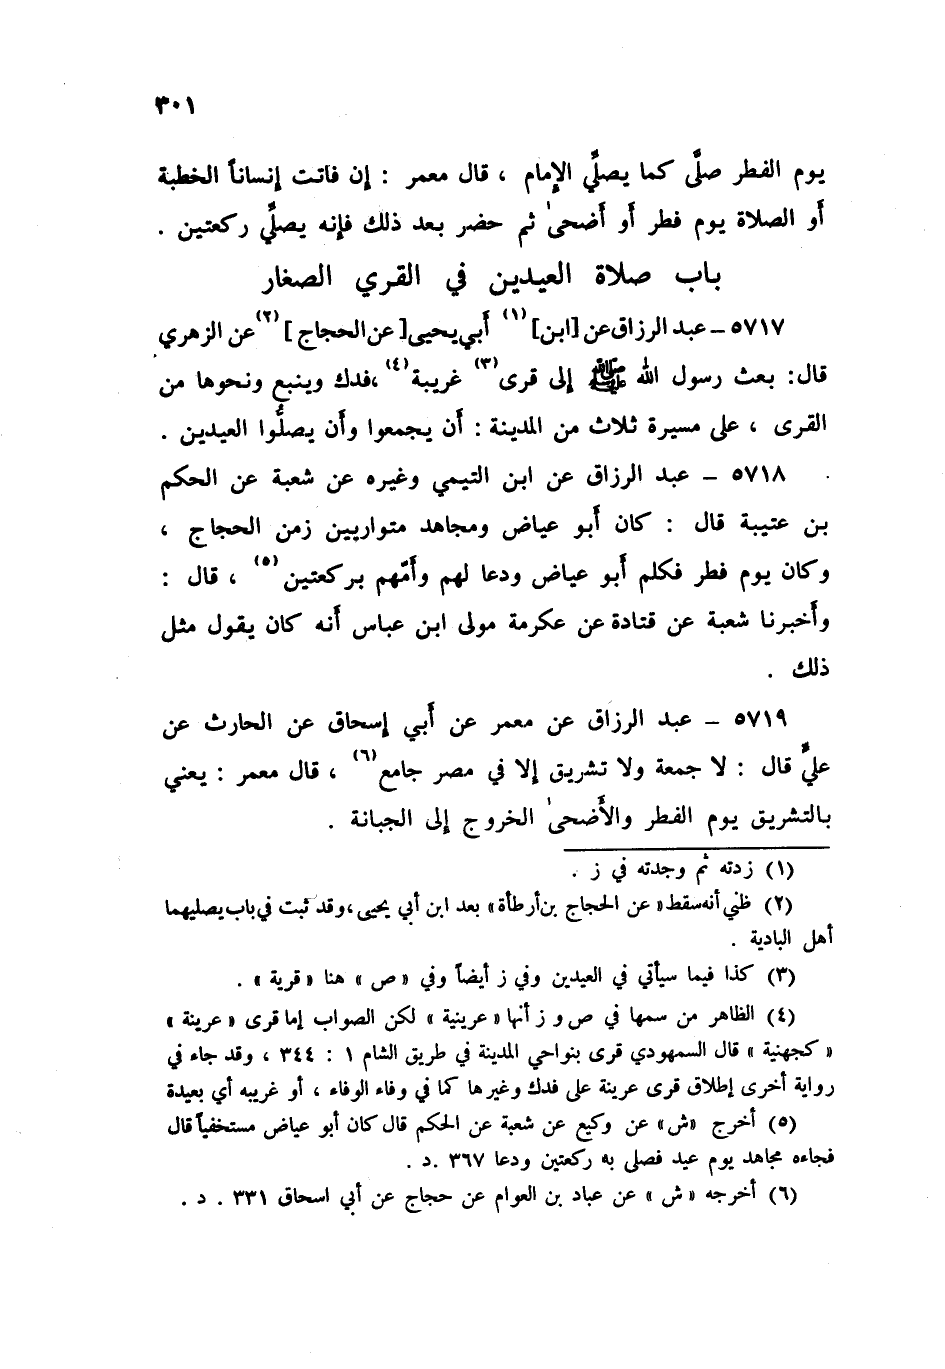 ٣٠١
يوم الفطر صلَّى كما يصلِّي الإمام ، قال معمر : إن فاتت إنساناً الخطبة
أو الصلاة يوم فطر أو أضحىٰ ثم حضر بعد ذلك فإنه يصلِّي ركعتين .
باب صلاة العيدين في القري الصغار
٥٧١٧ – عبد الرزاق عن [ابن] (١) أبي يحيى [ عن الحجاج ] (٢) عن الزهري
قال: بعث رسول الله ﷺ إلى قرى (٣) غريبة (٤) ،فدك وينبع ونحوها من
القرى ، على مسيرة ثلاث من المدينة : أن يجمعوا وأن يصلُّوا العيدين .
٥٧١٨ – عبد الرزاق عن ابن التيمي وغيره عن شعبة عن الحكم
بن عتيبة قال : كان أبو عياض ومجاهد متواريين زمن الحجاج ،
وكان يوم فطر فكلم أبو عياض ودعا لهم وأمّهم بركعتين (٥) ، قال :
وأخبرنا شعبة عن قتادة عن عكرمة مولى ابن عباس أنه كان يقول مثل
ذلك .
٥٧١٩ – عبد الرزاق عن معمر عن أبي إسحاق عن الحارث عن
عليٍّ قال : لا جمعة ولا تشريق إلا في مصر جامع (٦) ، قال معمر : يعني
بالتشريق يوم الفطر والأضحىٰ الخروج إلى الجبانة .
(١) زدته ثم وجدته في ز .
(٢) ظني أنه سقط « عن الحجاج بن أرطأة » بعد ابن أبي يحيى ، وقد ثبت في باب يصليهما
أهل البادية .
(٣) كذا فيما سيأتي في العيدين وفي ز أيضاً وفي « ص » هنا « قرية » .
(٤) الظاهر من سمها في ص و ز أنها « عرينية » لكن الصواب إما قرى « عرينة »
« كجهنية » قال السمهودي قرى بنواحي المدينة في طريق الشام ١ : ٣٤٤ ، وقد جاء في
رواية أخرى إطلاق قرى عرينة على فدك وغيرها كما في وفاء الوفاء ، أو غريبه أي بعيدة
(٥) أخرج «ش» عن وكيع عن شعبة عن الحكم قال كان أبو عياض مستخفياً قال
فجاءه مجاهد يوم عيد فصلى به ركعتين ودعا ٣٦٧ .د .
(٦) أخرجه « ش » عن عباد بن العوام عن حجاج عن أبي اسحاق ٣٣١ . د .